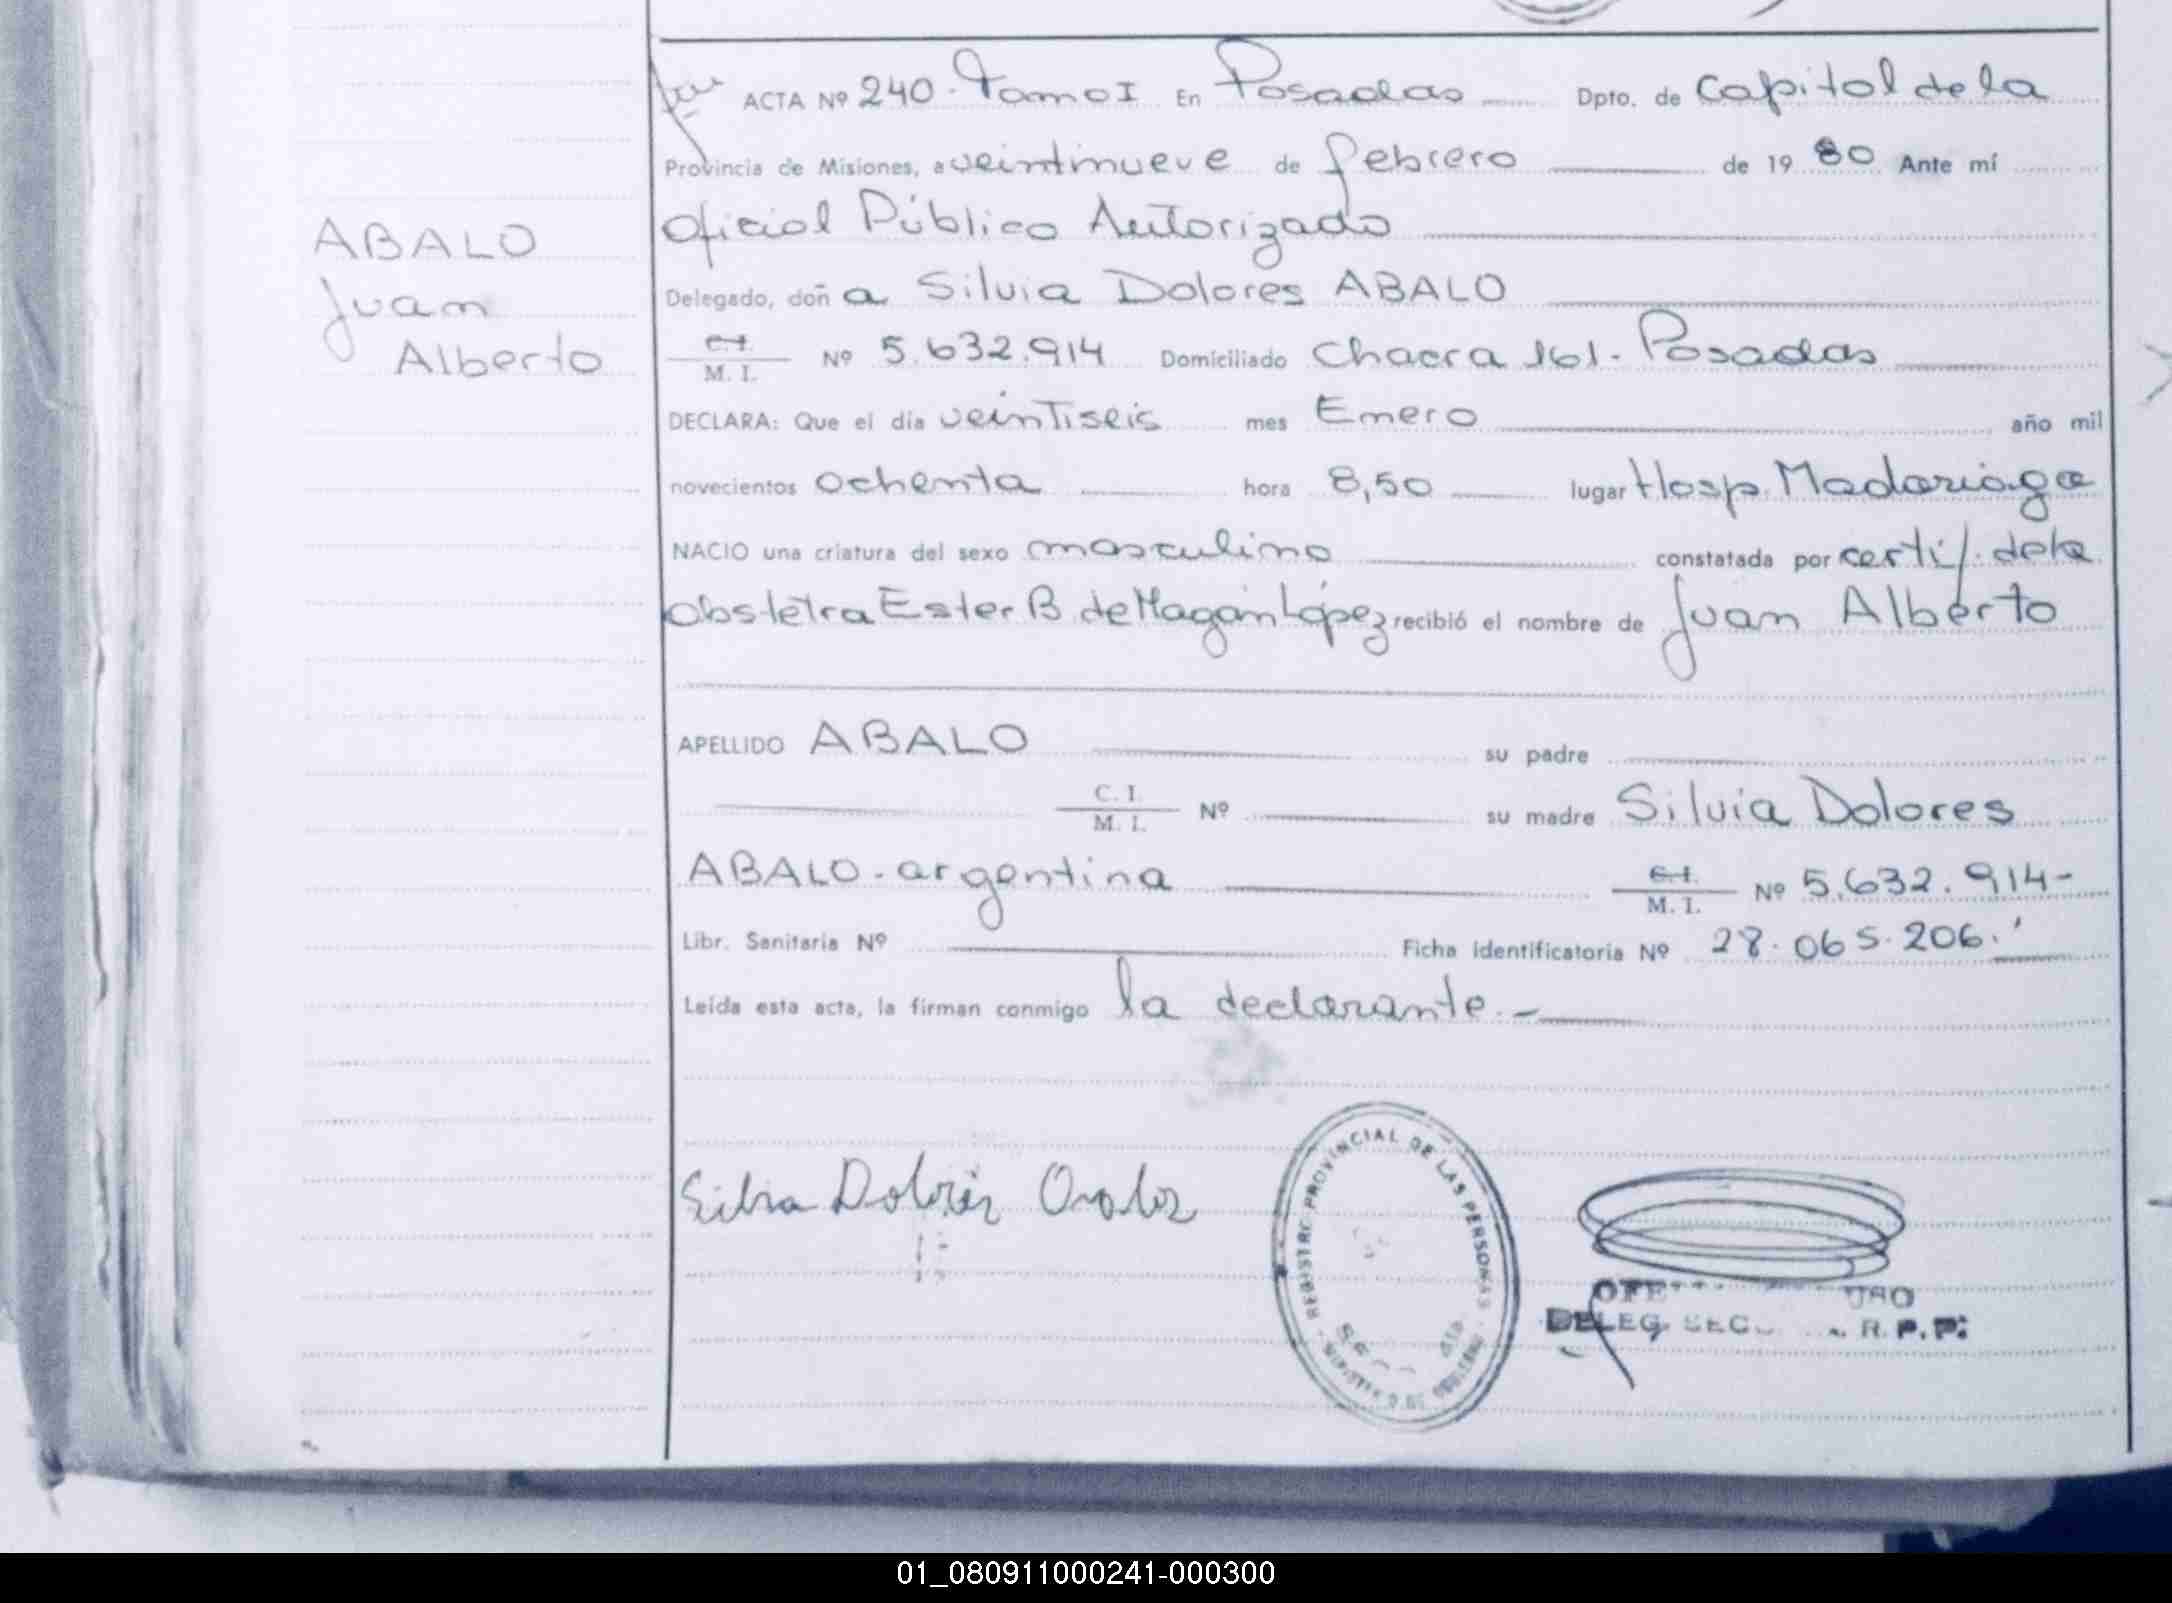 ACTA Nº 240. Tomo I En Posadas Dpto. de Capital de la
Provincia de Misiones, a veintinueve de febrero de 19 80 Ante mí
Oficial Público Autorizado
ABALO
Juan
Alberto
Delegado, doñ a Silvia Dolores ABALO
C.I.
M. I. Nº 5.632.914 Domiciliado Chacra 161 - Posadas
DECLARA: Que el día veintiseis mes Enero año mil
novecientos ochenta hora 8,50 lugar Hosp. Madariaga
NACIO una criatura del sexo masculino constatada por certif. de la
Obstetra Ester B. de Magán López recibió el nombre de Juan Alberto
APELLIDO ABALO su padre
C. I.
M. I. Nº su madre Silvia Dolores
ABALO - argentina C.I.
M. I. Nº 5.632.914-
Libr. Sanitaria Nº Ficha identificatoria Nº 28.065.206.
Leída esta acta, la firman conmigo la declarante.-
Silvia Dolores
REGISTRO PROVINCIAL DE LAS PERSONAS
DELEG. R.P.P.
01_080911000241-000300